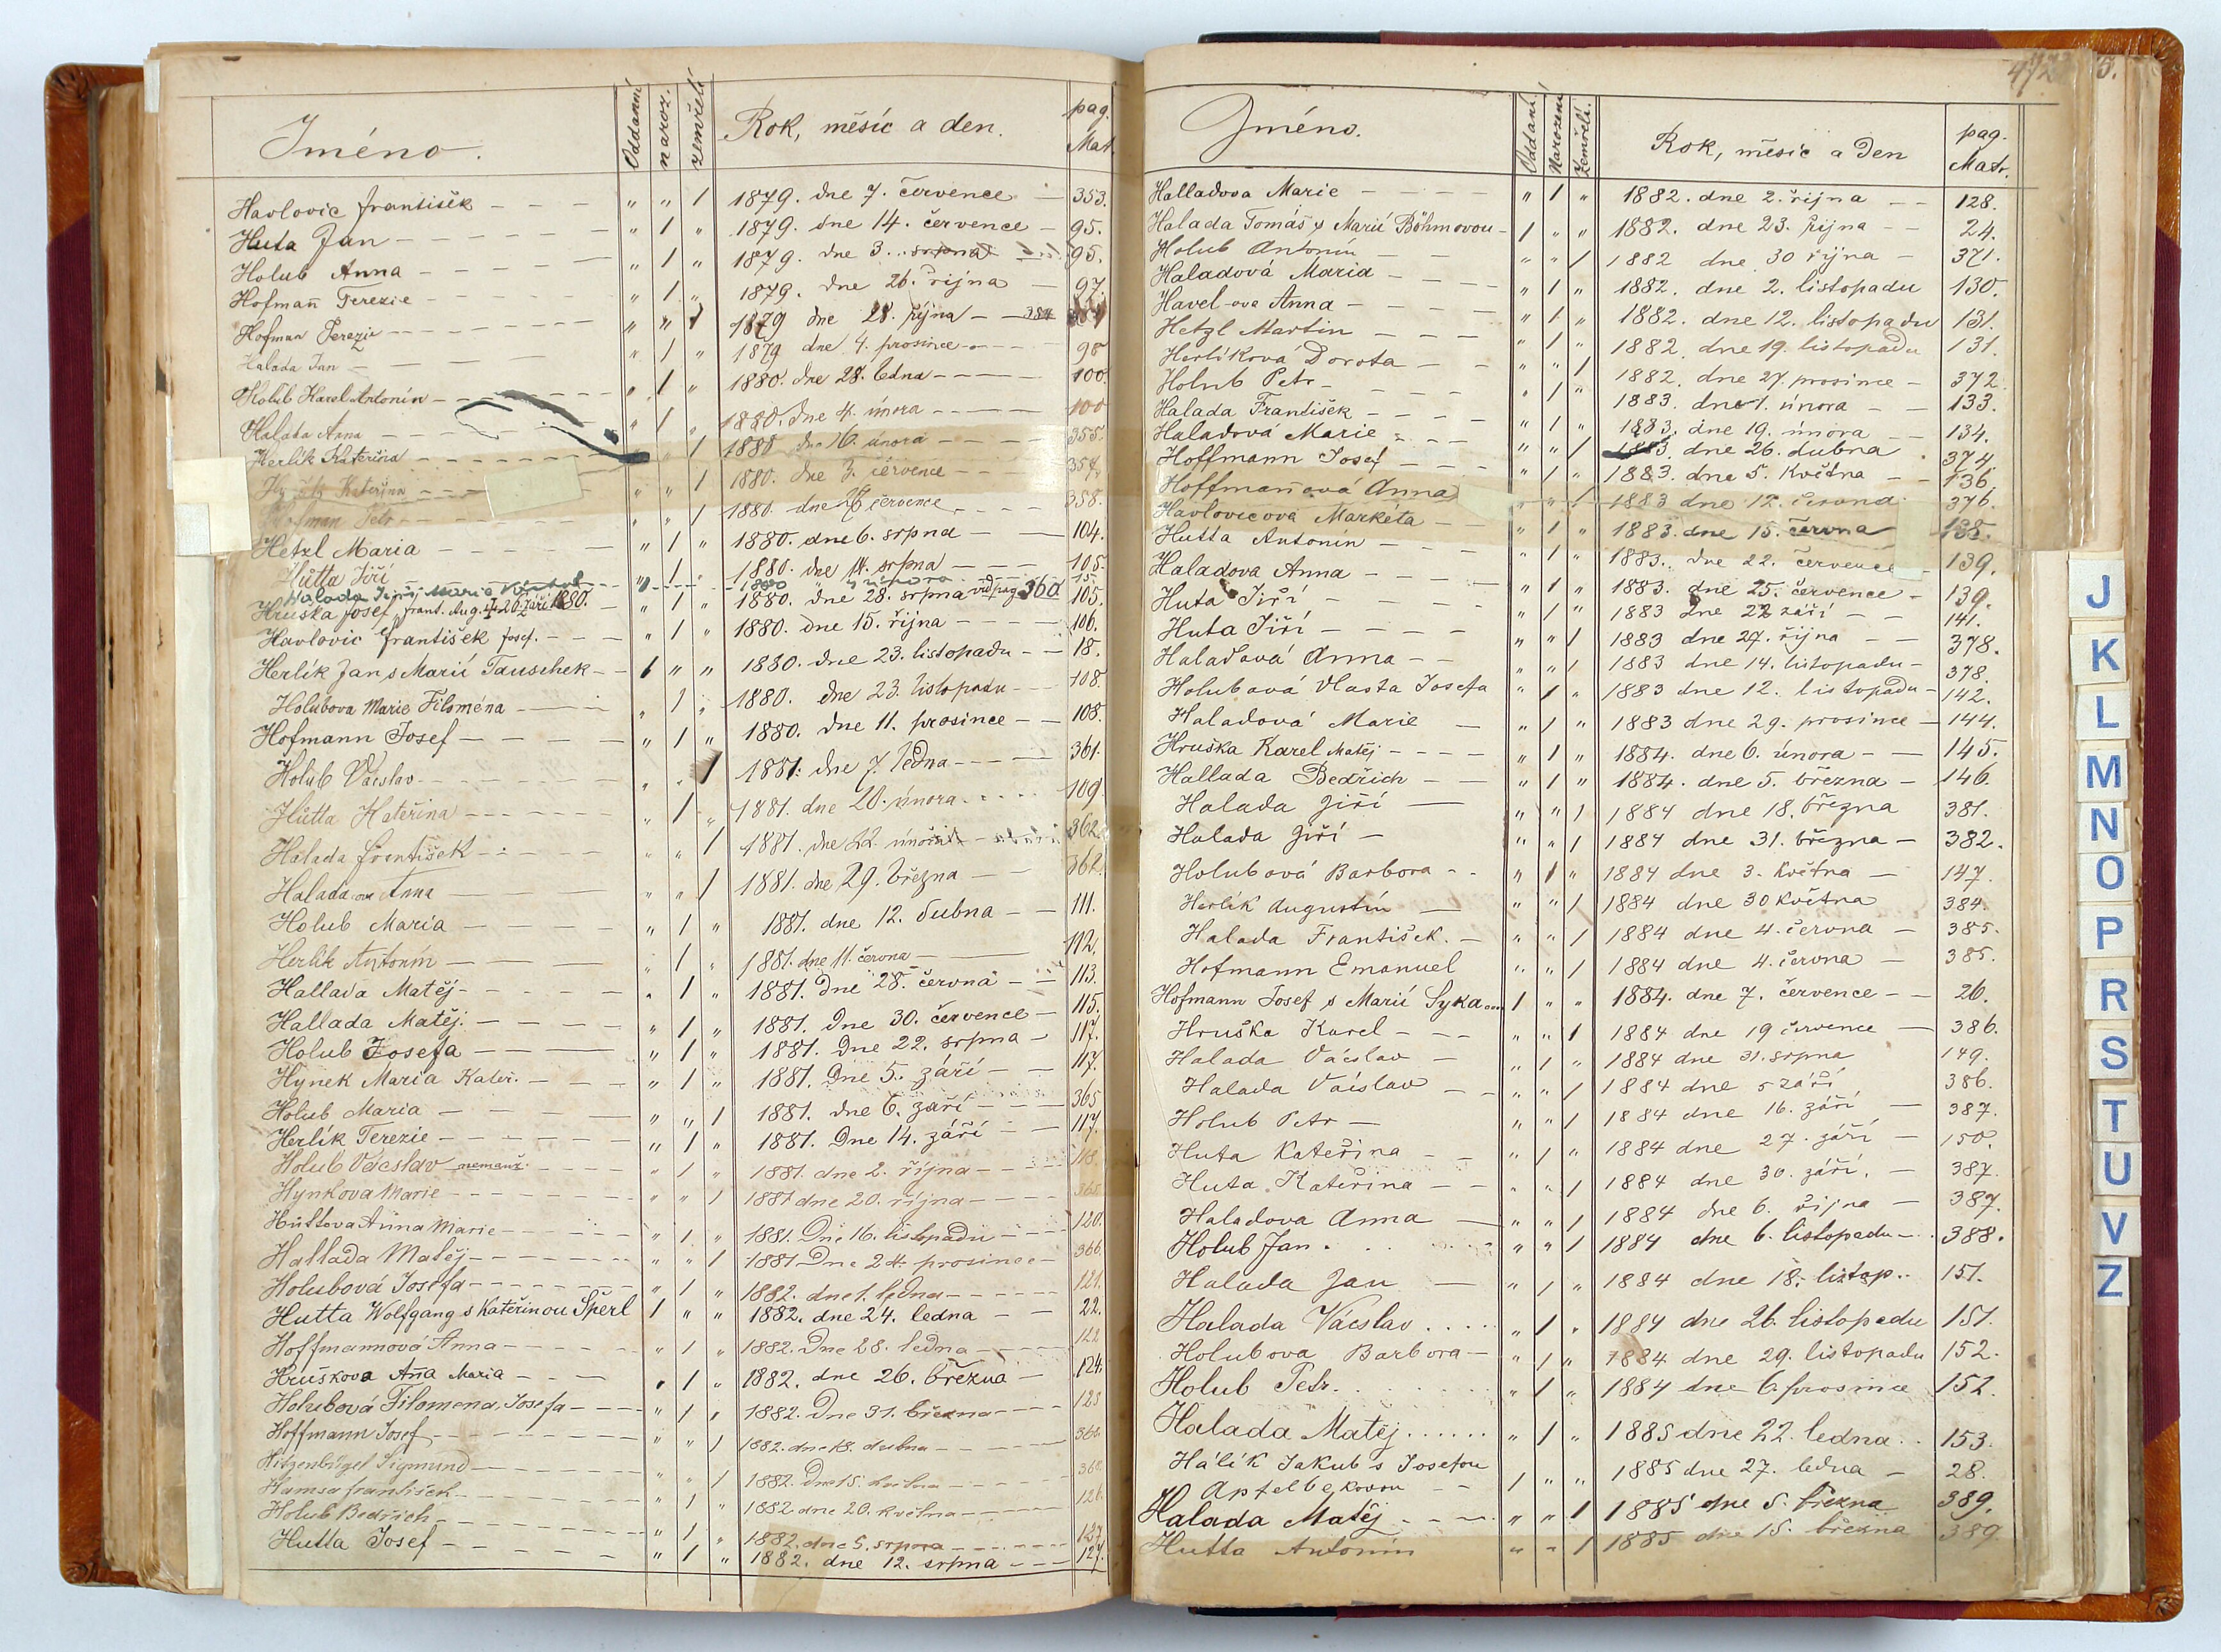 Jméno.
Oddaní
naroz.
zemřelí
Rok, měsíc a den.
pag. Mat.
Havlovic František - - - " " 1 1879. dne 7. července - 353.
Huta Jan - - - " 1 " 1879. dne 14. července - 95.
Holub Anna - - - " 1 " 1879. dne 3. srpna 95.
Hofmañ Terezie - - - " 1 " 1879. dne 26. října - 97.
Hofman Terezie - - - " " 1 1879 dne 28. října - 354
Halada Jan - - - " 1 " 1879 dne 4. prosince - 98
Holub Karel Antonín - - - " 1 " 1880. dne 28. ledna - 100.
Halada Anna - - - " 1 " 1880. dne 4. února - 100
Herlík Kateřina - - - " " 1 1880 dne 16. února - 355.
Kateřina - - - " " 1 1880. dne 3. července - 357.
Hofman Petr - - - " " 1 1880. dne července - 358.
Hetzl Maria - - - " 1 " 1880. dne 6. srpna - 104.
Hutta Jiří " 1 " 1880. dne 14. srpna - 105.
Halada Jiří, Marie 1880 února 15.
Hruška Josef, Frant. Aug. 20. září 1880. " 1 " 1880. dne 28. srpna vid pag. 360 105.
Havlovic František Josef. - - - " 1 " 1880. dne 15. října - 106.
Herlík Jan s Marií Tauschek - - 1 " " 1880. dne 23. listopadu - 18.
Holubova Marie Filoména - - - " 1 " 1880. dne 23. listopadu - 108.
Hofmann Josef - - - " 1 " 1880. dne 11. prosince - 108.
Holub Václav - - - " " 1 1881. dne 7. ledna - 361.
Hutta Kateřina - - - " 1 " 1881. dne 20. února - 109
Halada František - - - " " 1 1881. dne 22. února 362.
Halada ova Anna - - - " " 1 1881. dne 29. března - 362.
Holub Maria - - - " 1 " 1881. dne 12. dubna - 111.
Herlík Antonín - - - " 1 " 1881. dne 11. června - 112.
Hallada Matěj - - - " 1 " 1881. dne 28. června - 113.
Hallada Matěj. - - - " 1 " 1881. Dne 30. července - 115.
Holub Josefa - - - " 1 " 1881. Dne 22. srpna - 117.
Hynek Maria Kateř. - - - " 1 " 1881. Dne 5. září - 117.
Holub Maria - - - " " 1 1881. dne 6. září - 365
Herlík Terezie - - - " 1 " 1881. Dne 14. září - 117.
Holub Václav nemanž. " 1 " 1881. dne 2. října - 118.
Hynkova Marie - - - " " 1 1881 dne 20. října - 365
Huttova Anna Marie - - - " 1 " 1881. Dne 16. listopadu - 120.
Hallada Matěj - - - " " 1 1881 Dne 24. prosince - 366.
Holubová Josefa - - - " 1 " 1882. dne 1. ledna - 121.
Hutta Wolfgang s Kateřinou Šperl 1 " " 1882. dne 24. ledna - 22.
Hoffmannová Anna - - - " 1 " 1882. Dne 28. ledna - 122
Hruškova Aña Maria - - - " 1 " 1882. dne 26. března - 124.
Holubová Filomena, Josefa - - - " 1 " 1882. Dne 31. března - 125
Hoffmann Josef - - - " " 1 1882. dne 18. dubna - 368.
Hitzenbügel Sigmund - - - " " 1 1882. Dne 15. 368.
Hamsa František - - - " 1 " 1882 dne 20. května - 126.
Holub Bedřich - - - " 1 " 1882. dne 5. srpna - 127.
Hutta Josef - - - " 1 " 1882. dne 12. srpna - 127.
5.
Jméno.
Oddaní.
Narození
Zemřelí.
Rok, měsíc a Den
pag. Matr.
Halladova Marie - - - " 1 " 1882. dne 2. října - 128.
Halada Tomáš s Marií Böhmovou - 1 " " 1882. dne 23. října - 24.
Holub Antonín - - " " 1 1882 dne 30 října - 371.
Haladová Maria - - - " 1 " 1882. dne 2. listopadu 130.
Havel-ova Anna - - - " 1 " 1882. dne 12. listopadu 131.
Hetzl Martin - - - " 1 " 1882. dne 19. listopadu 131.
Herlíková Dorota - - - " " 1 1882. dne 27. prosince - 372.
Holub Petr - - - " 1 " 1883. dne 1. února - 133.
Halada František - - - " 1 " 1883. dne 19. února - 134.
Haladová Marie - - - " " 1 1883. dne 26. dubna 374.
Hoffmann Josef - - - " 1 " 1883. dne 5. května - 136.
Hoffmañová Anna " " 1 1883 dne 12. června 376.
Havlovicová Markéta - " 1 " 1883. dne 15. června 138.
Hutta Antonín - - - " 1 " 1883. dne 22. července 139.
Haladova Anna - - - " 1 " 1883. dne 25. července - 139.
Huta Jiří - - - " 1 " 1883 dne 22 září - 141.
Huta Jiří - - - " " 1 1883 dne 27. října - 378.
Haladová Anna - - " " 1 1883 dne 14. listopadu - 378.
Holubová Vlasta Josefa " 1 " 1883 dne 12. listopadu - 142.
Haladová Marie - " 1 " 1883 dne 29. prosince - 144.
Hruška Karel Matěj - - - " 1 " 1884. dne 6. února - 145.
Hallada Bedřich - - " 1 " 1884. dne 5. března - 146.
Halada Jiří - " " 1 1884 dne 18. března 381.
Halada Jiří - " " 1 1884 dne 31. března - 382.
Holubová Barbora - - " 1 " 1884 dne 3. května - 147.
Herlík Augustin - " " 1 1884 dne 30 května 384.
Halada František. - " " 1 1884 dne 4. června - 385.
Hofmann Emanuel " " 1 1884 dne 4. června - 385.
Hofmann Josef s Marií Syka 1 " " 1884. dne 7. července - 26.
Hruška Karel - - " " 1 1884 dne 19 července - 386.
Halada Václav - " 1 " 1884 dne 31. srpna 149.
Halada Václav - - " " 1 1884 dne 5 září 386.
Holub Petr - " " 1 1884 dne 16. září - 387.
Huta Kateřina - - " 1 " 1884 dne 27. září - 150.
Huta Kateřina - - " " 1 1884 dne 30. září. - 387.
Haladova Anna - " " 1 1884 dne 6. října - 387.
Holub Jan . . . " " 1 1884 dne 6. listopadu - 388.
Halada Jan - " 1 " 1884 dne 18. listop.. 151.
Halada Václav . . . . " 1 " 1884 dne 26. listopadu 151.
Holubova Barbora - " 1 " 1884 dne 29. listopadu 152.
Holub Petr. . . . " 1 " 1884 dne 6. prosince 152.
Halada Matěj . . . . . . " 1 " 1885 dne 22. ledna . . 153.
Hálík Jakub s Josefou
Apfelbekovou - - 1 " " 1885 dne 27. ledna - 28.
Halada Matěj - - - " " 1 1885 dne 5. března 389.
Hutta Antonín " " 1 1885 dne 15. března 389.
J
K
L
M
N
O
P
R
S
T
U
V
Z